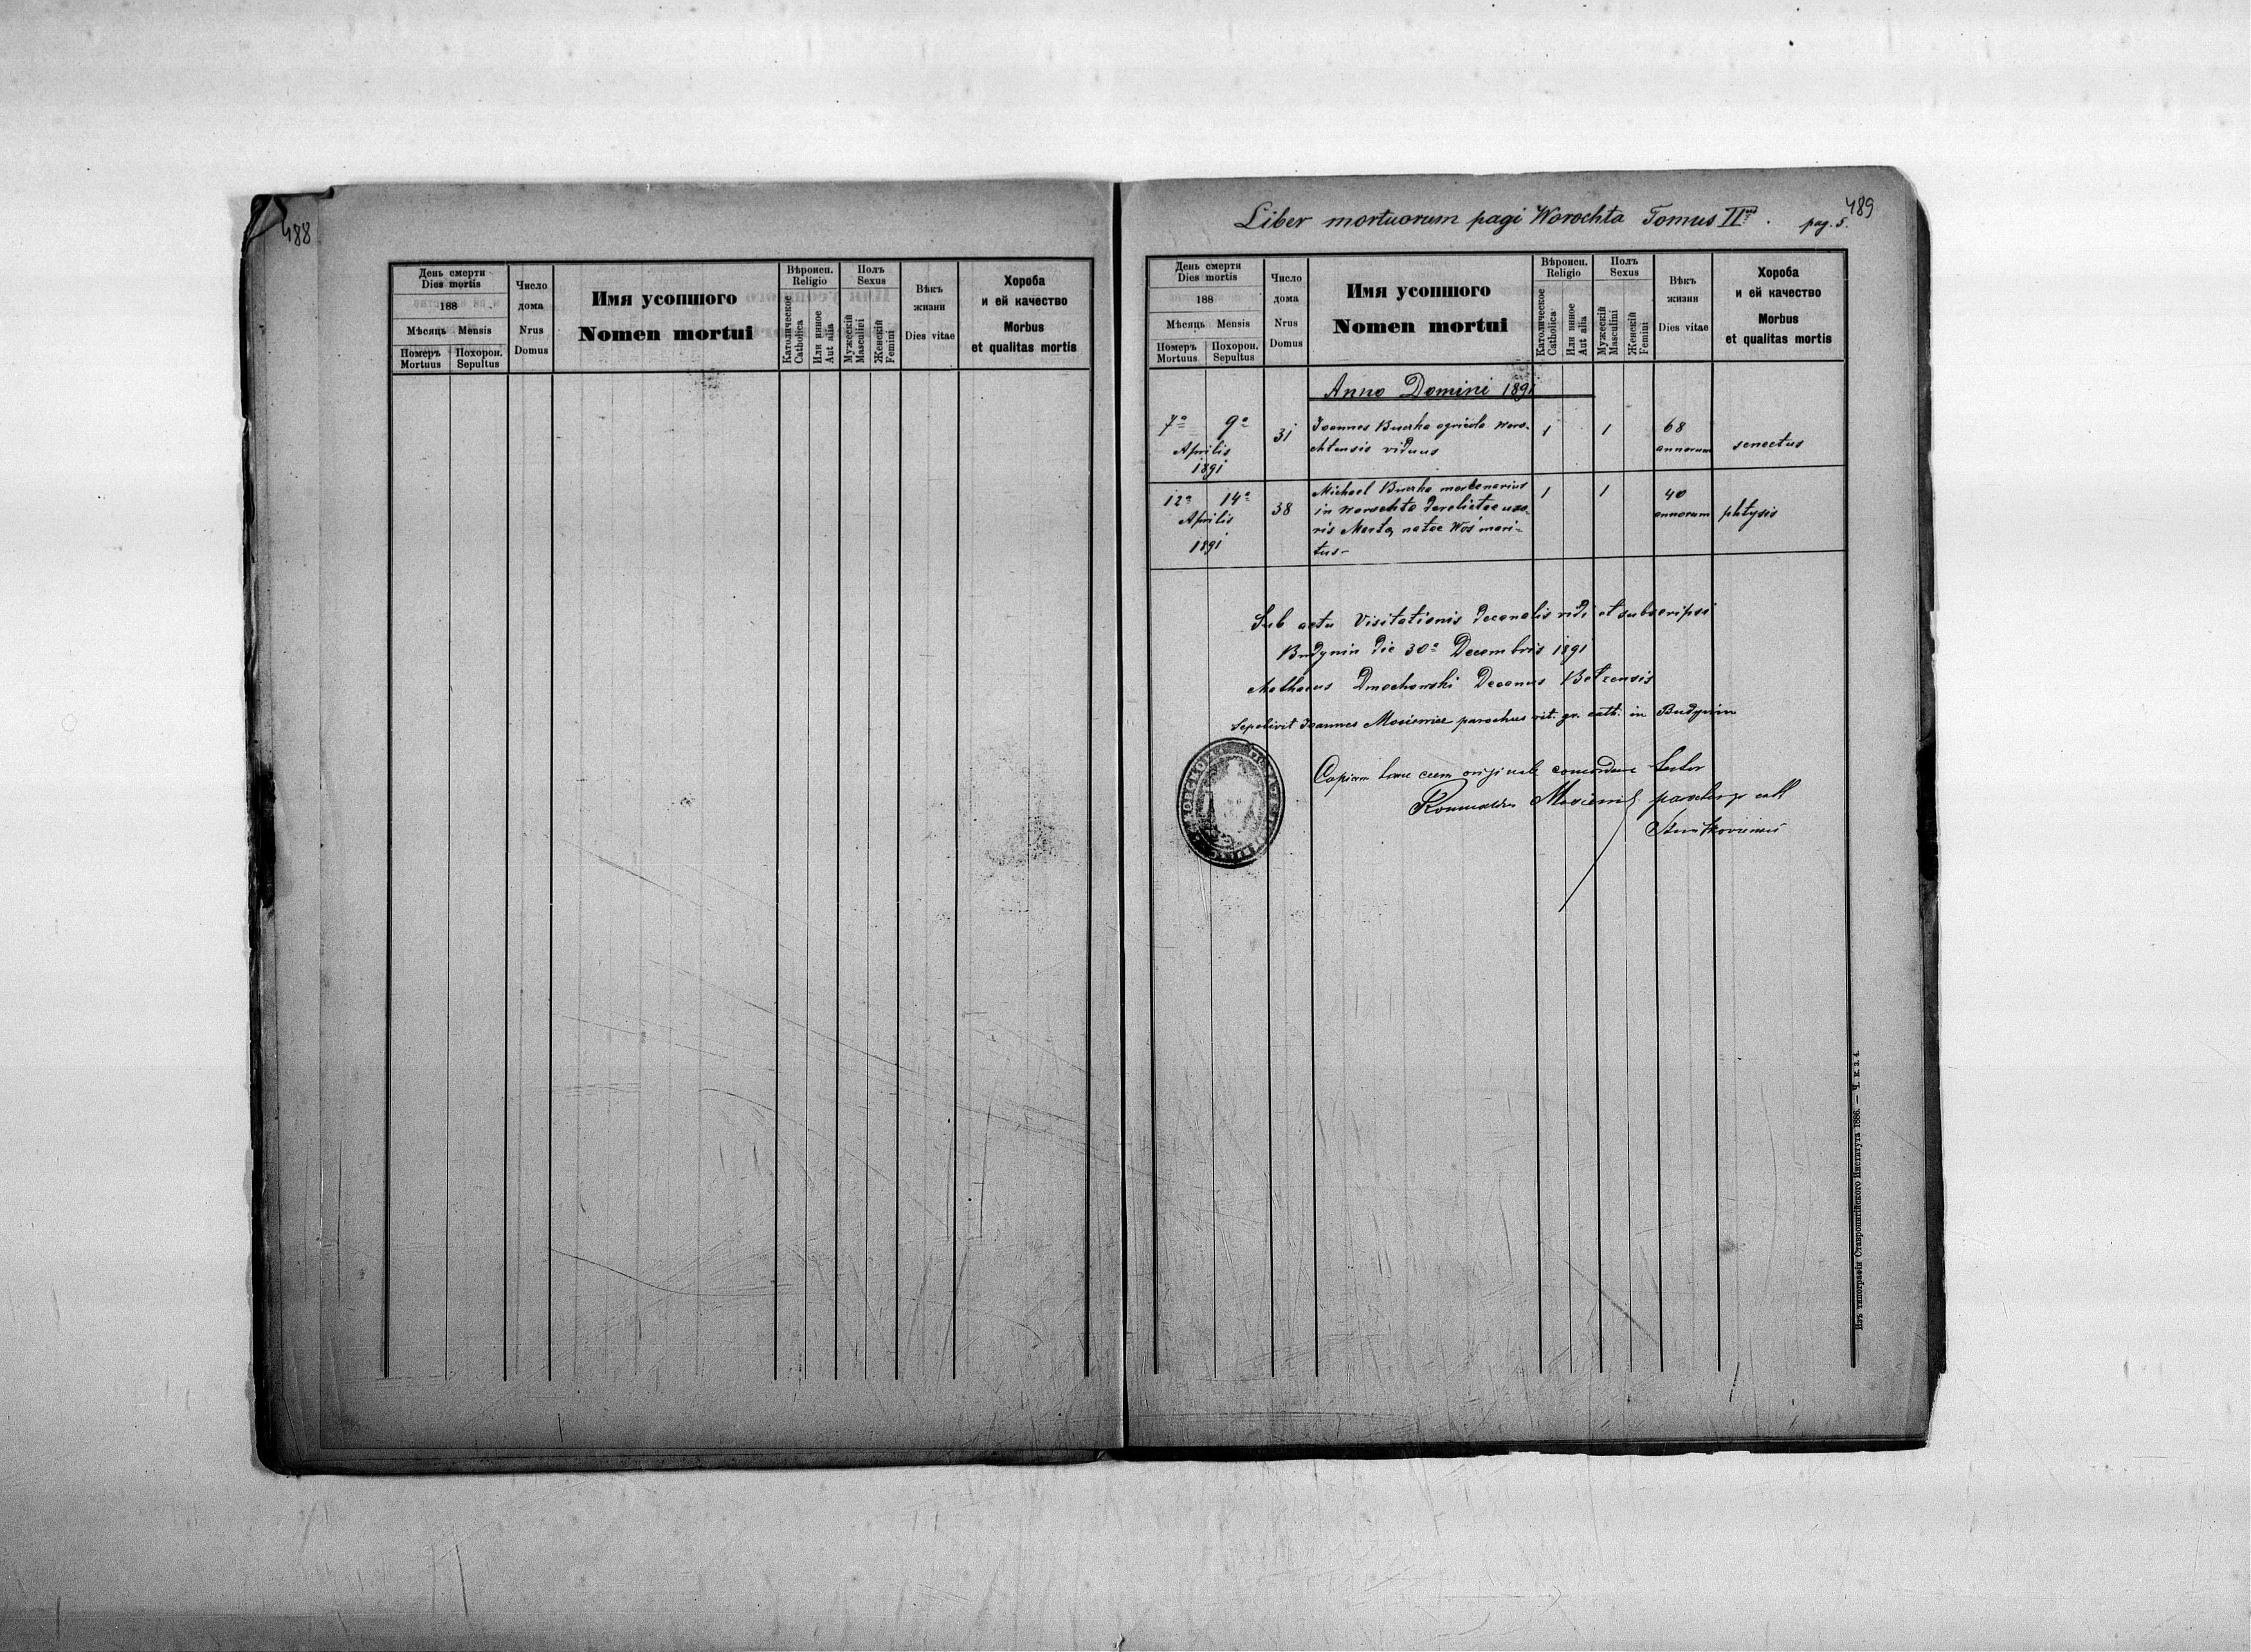 488
День смерти
Dies mortis
188
Мѣсяць Mensis
Померъ Mortuus
Похорон. Sepultus
Число дома
Nrus Domus
Имя усопшого
Nomen mortui
Вѣроисп.
Religio
Католическое Catholica
Или инное Aut alia
Полъ
Sexus
Мужескій Masculini
Женскій Femini
Вѣкъ жизни
Dies vitae
Хороба
и ей качество
Morbus
et qualitas mortis
489
Liber mortuorum pagi Worochta Tomus II
pag. 5.
День смерти
Dies mortis
188
Мѣсяць Mensis
Померъ Mortuus
Похорон. Sepultus
Число дома
Nrus Domus
Имя усопшого
Nomen mortui
Вѣроисп.
Religio
Католическое Catholica
Или инное Aut alia
Полъ
Sexus
Мужескій Masculini
Женскій Femini
Вѣкъ жизни
Dies vitae
Хороба
и ей качество
Morbus
et qualitas mortis
Anno Domini 1891
7a 9a Aprilis 1891 31 Joannes agricola Woro-
chtensis viduus 1 1 68 annorum senectus
12a 14a Aprilis 1891 38 Michael mercenarius
in Worochta derelictae uxo-
ris natae Woś mari-
tus 1 1 40 annorum phtysis
Sub actu Visitationis decanalis vidi et subscripsi
Budynin die 30a Decembris 1891
Mathaeus Dmochowski Decanus Belzensis
Sepelivit Joannes Mosiewicz parochus rit. gr. cath. in Budynin
Copiam hanc cum originale concordare testor
Romualdus
Изъ типографіи Ставропигійского Института 1886. — Ч. к. з. 4.